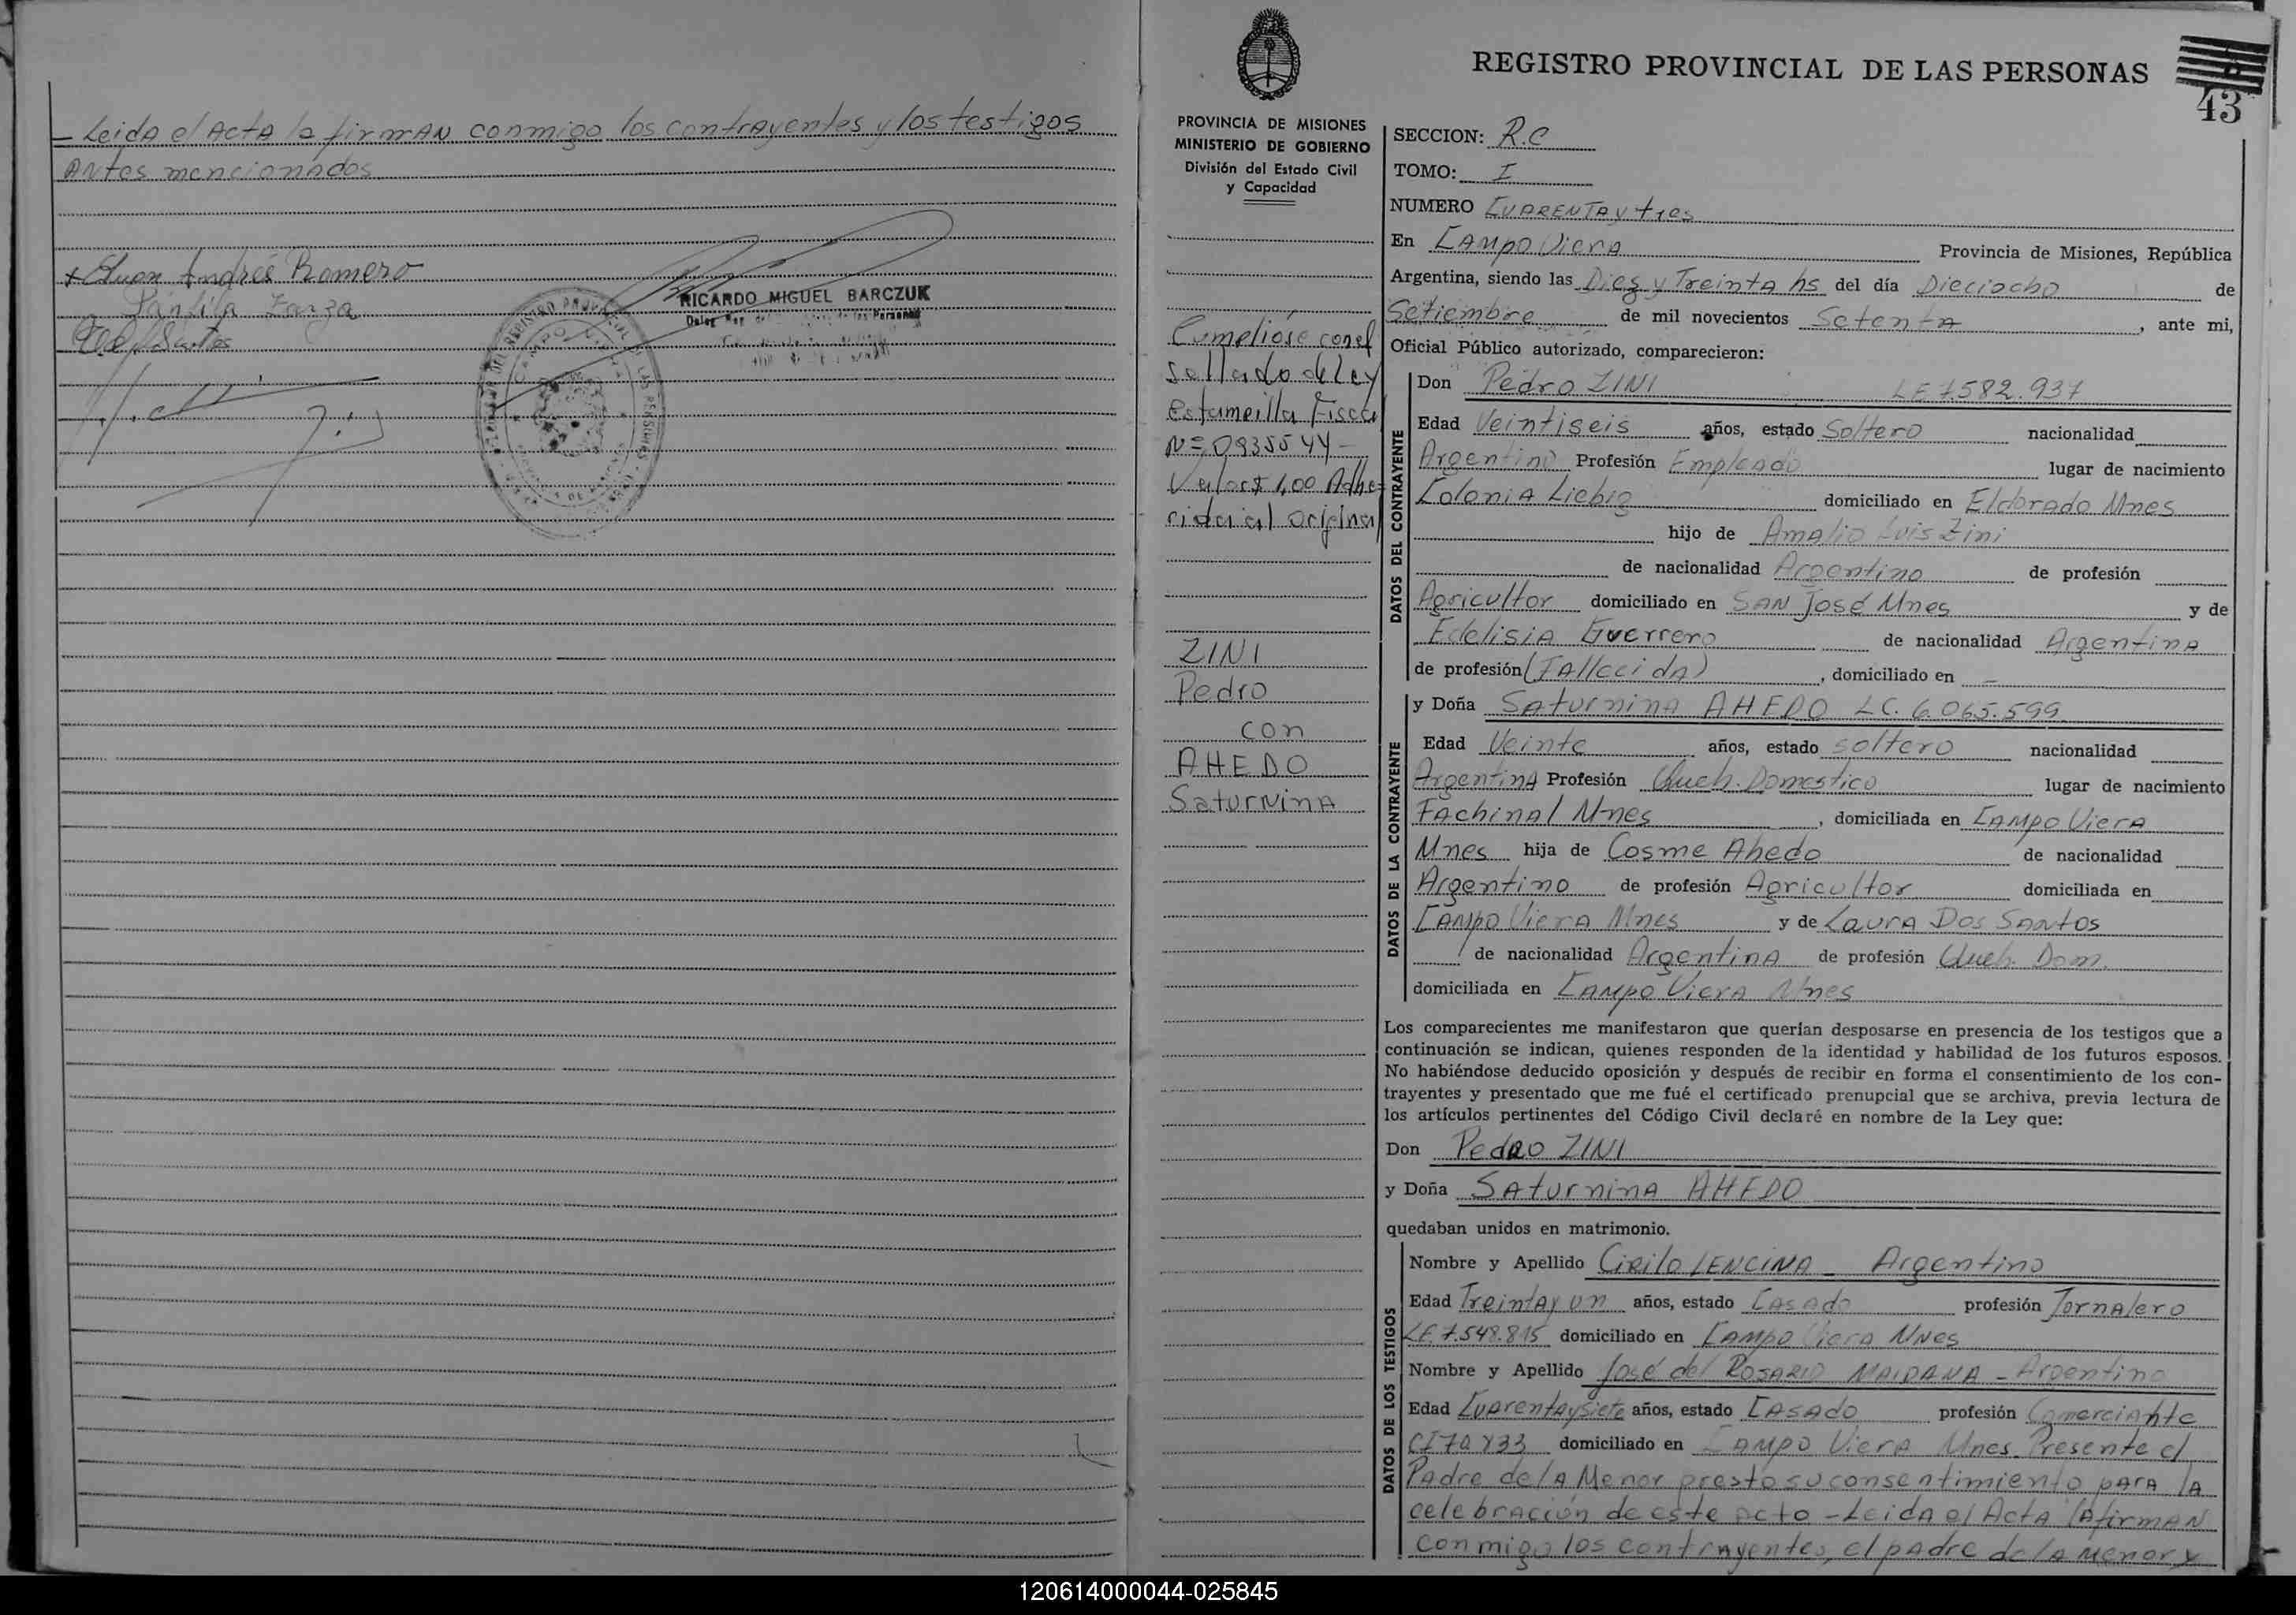 - Leida el Acta la firman conmigo los contrayentes y los testigos
Antes mencionados
+ Juan Andrés Romero
Zarza
RICARDO MIGUEL BARCZUK
REGISTRO PROVINCIAL DE LAS PERSONAS
43
PROVINCIA DE MISIONES
MINISTERIO DE GOBIERNO
División del Estado Civil
y Capacidad
Cumplióse con el
sellado de ley
Estampilla Fiscal
Nº 0935544-
Valor $ 1,00 Adhe-
rida al original
ZINI
Pedro
con
AHEDO
Saturnina
SECCION: R.C
TOMO: I
NUMERO Cuarenta y tres
En Campo Viera Provincia de Misiones, República
Argentina, siendo las Diez y Treinta hs del día Dieciocho de
Setiembre de mil novecientos Setenta, ante mi,
Oficial Público autorizado, comparecieron:
DATOS DEL CONTRAYENTE
Don Pedro ZINI LE 7.582.937
Edad Veintiseis años, estado Soltero nacionalidad
Argentino Profesión Empleado lugar de nacimiento
Colonia Liebig domiciliado en Eldorado Mnes
hijo de Amalio Luis Zini
de nacionalidad Argentino de profesión
Agricultor domiciliado en San José Mnes y de
Edelisia Guerrero de nacionalidad Argentina
de profesión (Fallecida), domiciliado en -
DATOS DE LA CONTRAYENTE
y Doña Saturnina AHEDO LC. 6.065.599
Edad Veinte años, estado soltero nacionalidad
Argentina Profesión Queh. Domestico lugar de nacimiento
Fachinal Mnes, domiciliada en Campo Viera
Mnes hija de Cosme Ahedo de nacionalidad
Argentino de profesión Agricultor domiciliada en
Campo Viera Mnes y de Laura Dos Santos
de nacionalidad Argentina de profesión Queh. Dom.
domiciliada en Campo Viera Mnes
Los comparecientes me manifestaron que querían desposarse en presencia de los testigos que a
continuación se indican, quienes responden de la identidad y habilidad de los futuros esposos.
No habiéndose deducido oposición y después de recibir en forma el consentimiento de los con-
trayentes y presentado que me fué el certificado prenupcial que se archiva, previa lectura de
los artículos pertinentes del Código Civil declaré en nombre de la Ley que:
Don Pedro ZINI
y Doña Saturnina AHEDO
quedaban unidos en matrimonio.
DATOS DE LOS TESTIGOS
Nombre y Apellido Cirilo LENCINA - Argentino
Edad Treinta y un años, estado Casado profesión Jornalero
LE 7.548.815 domiciliado en Campo Viera Mnes
Nombre y Apellido José del Rosario MAIDANA - Argentino
Edad Cuarenta y siete años, estado Casado profesión Comerciante
domiciliado en Campo Viera Mnes. Presente el
Padre de la Menor presto su consentimiento para la
celebración de este acto - Leida el Acta la firman
conmigo los contrayentes, el padre de la menor y
120614000044-025845